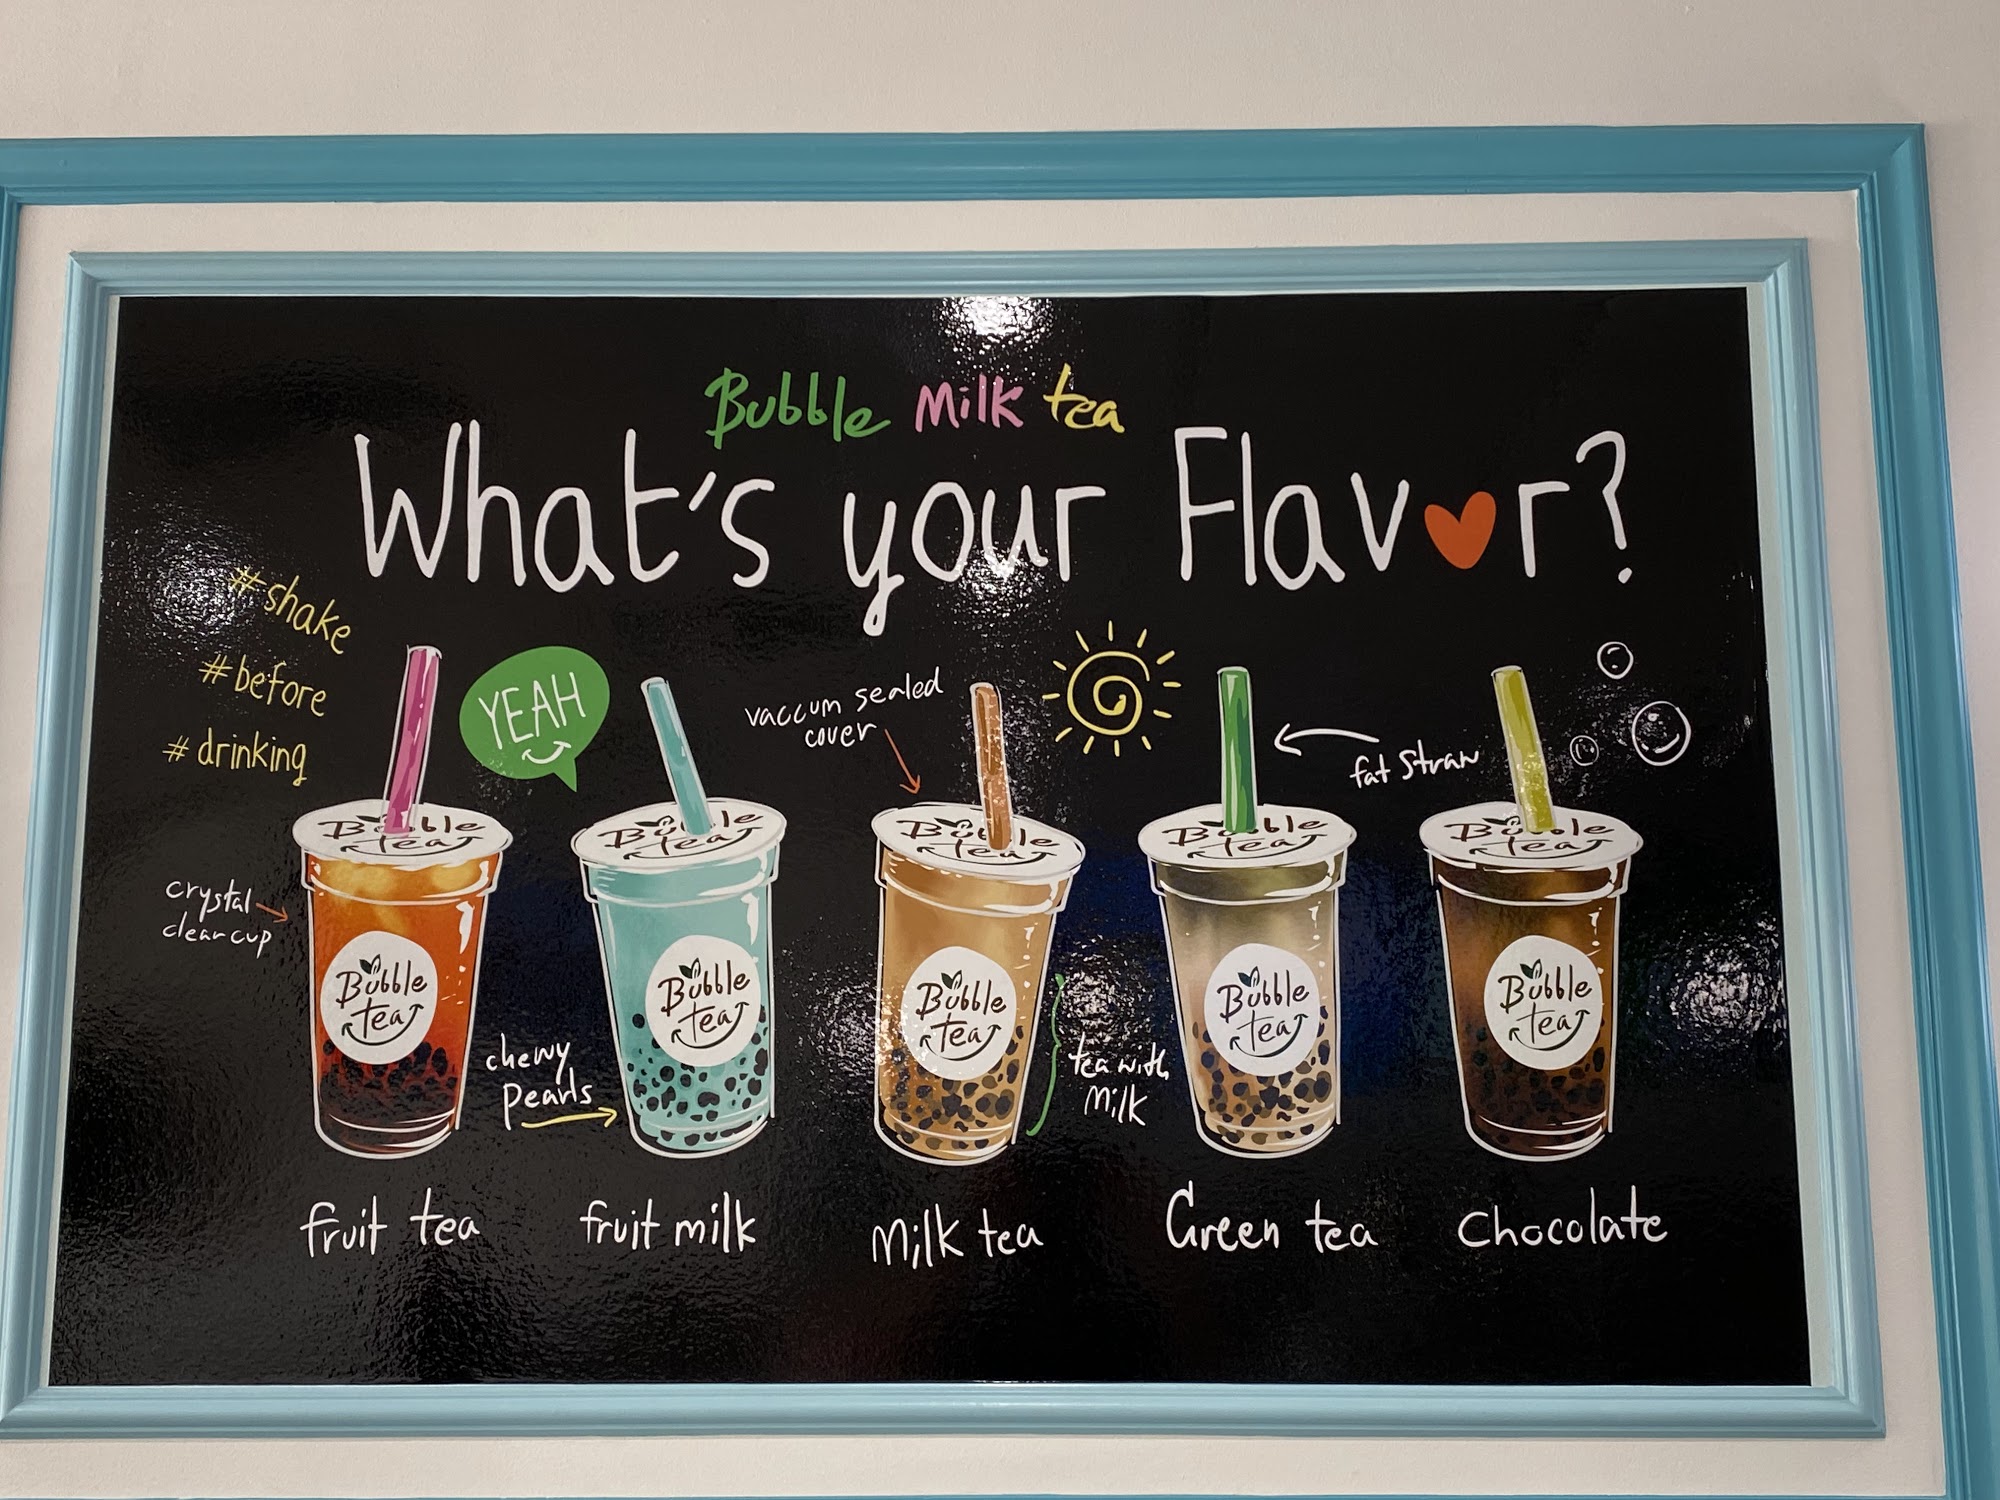 Bubble Milk tea
What's your Flavor?
#shake
#before
#drinking
YEAH
vaccum sealed
cover
fat straw
Bubble
tea
Bubble
tea
Bubble
tea
Bubble
tea
Bubble
tea
crystal
clear cup
Bubble
tea
Bubble
tea
Bubble
tea
Bubble
tea
Bubble
tea
chewy
pearls
tea with
Milk
fruit tea
fruit milk
Milk tea
Green tea
Chocolate